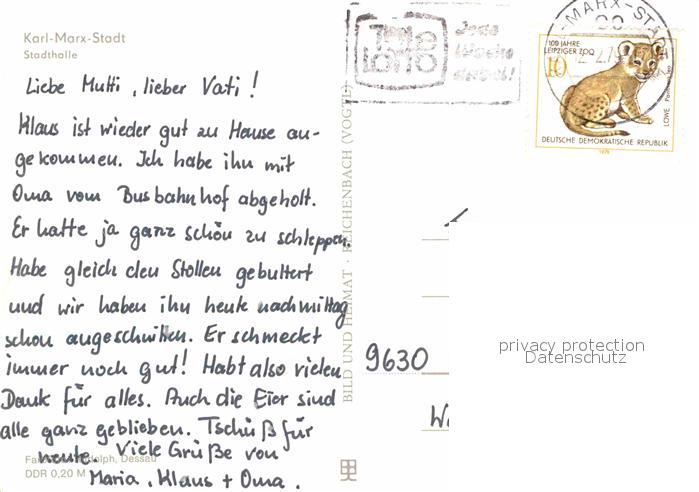 Karl-Marx-Stadt
Stadthalle
Liebe Mutti, lieber Vati!
Klaus ist wieder gut zu Hause an-
gekommen. Ich habe ihn mit
Oma vom Busbahnhof abgeholt.
Er hatte ja ganz schön zu schleppen.
Habe gleich den Stollen gebuttert
und wir haben ihn heute nachmittag
schon angeschnitten. Er schmeckt
immer noch gut! Habt also vielen
Dank für alles. Auch die Eier sind
alle ganz geblieben. Tschüß für
heute. Viele Grüße von
Maria, Klaus + Oma.
DDR 0,20 M
BILD UND HEIMAT · REICHENBACH (VOGTL)
Tele
Lotto
Jede
Woche
dabei!
-MARX-STADT
100 JAHRE
LEIPZIGER ZOO
10
LÖWE
DEUTSCHE DEMOKRATISCHE REPUBLIK
1978
9630
privacy protection
Datenschutz